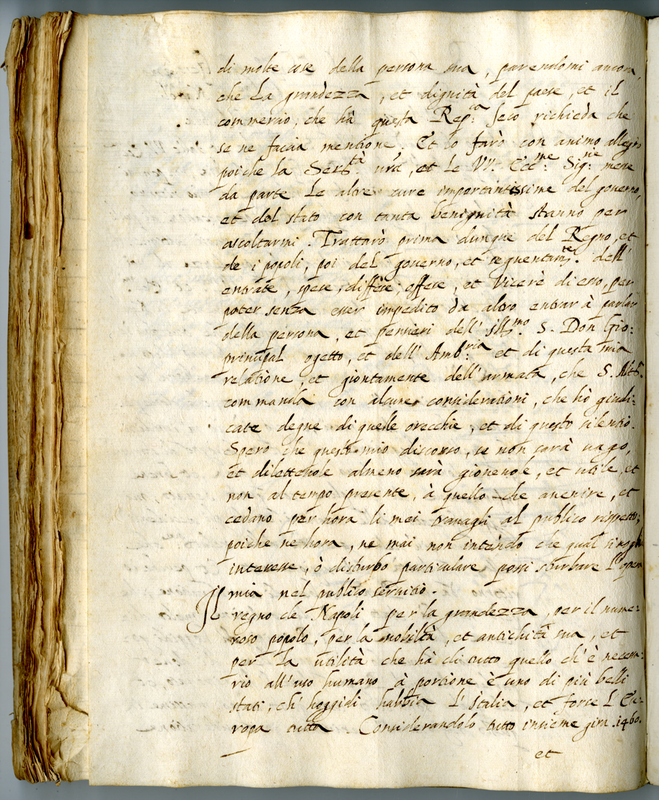 di molte cose della persona sua, parendomi ancora,
che La grandezza, et dignità del paese, et il
commercio, che hà questa Rep.ca seco richieda che
se ne facia mentione. Et lo farò con animo allegro
poiche la Ser.tà v̄ra, et le VV. Ecc.me Sig.rie messe
da parte le altre cure importantissime del governo,
et del stato con tanta benignità stanno per
ascoltarmi. Trattarò prima dunque del Regno, et
de i popoli, poi del governo, et seguentem.te dell'
entrate, spese, diffese, offese, et Vicerè di esso, per
poter senza esser impedito da altro entrar à parlar
della persona, et pensieri dell' Ill.mo S. Don Gio:
principal ogetto, et dell' Amb.ria et di questa mia
relatione, et giontamente dell' armata, che S. Alt.a
commanda con alcune considerationi, che hò giudi-
cate degne di quelle orecchie, et di questo silentio.
Spero che questo mio discorso, se non sarà vago,
et dilettevole almeno sarà giovevole, et utile, et
non al tempo presente, à quello che avenire, et
cedano per hora li miei travagli al publico rispetto;
poiche ne hora, ne mai non intendo che qual si
interesse, ò disturbo particulare possi sturbare l'opera
mia nel publico servitio.
Il regno de Napoli per la grandezza, per il nume-
roso popolo, per la nobiltà, et antichità sua, et
per la utilità che hà di tutto quello ch' è necessa-
rio all' uso humano à portione è uno di più belli
stati, ch' hoggidi habbia l' Italia, et forse l' Eu-
ropa tutta Considerandolo tutto insieme gira .1460.
et